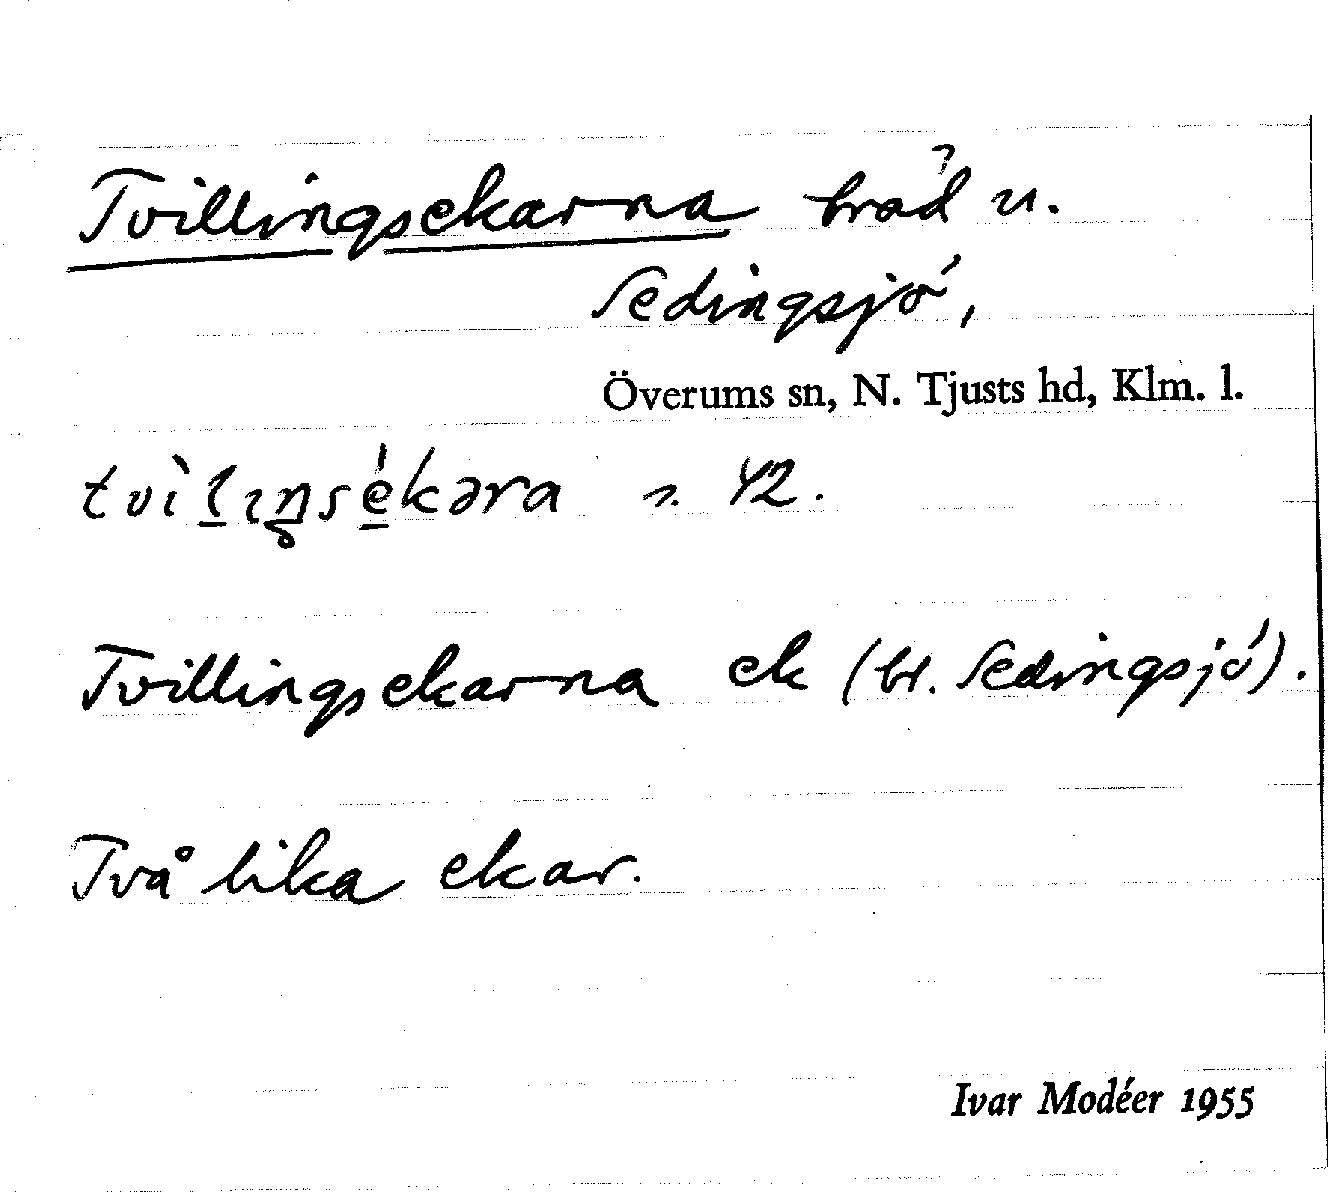 Tvillingsekarna träd u.
Sedingsjö,
Överums sn, N. Tjusts hd, Klm. l.
42.
Tvillingsekarna ek (bl. Sedingsjö).
Två lika ekar.
Ivar Modéer 1955